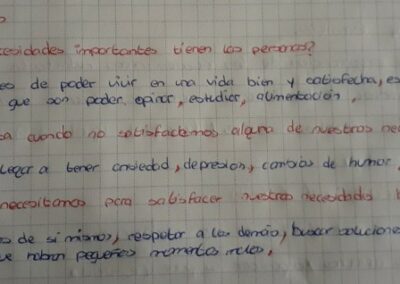 cesidades importantes tienen las personas?
de poder vivir en una vida bien y satisfecha, es
que son poder opinar, estudiar, alimentación,
cuando no satisfacemos alguna de nuestras nec
llegar a tener ansiedad, depresion, cambios de humor,
necesitamos para satisfacer nuestras necesidades
de si mismos, respetar a los demás, buscar soluciones
pequeños momentos